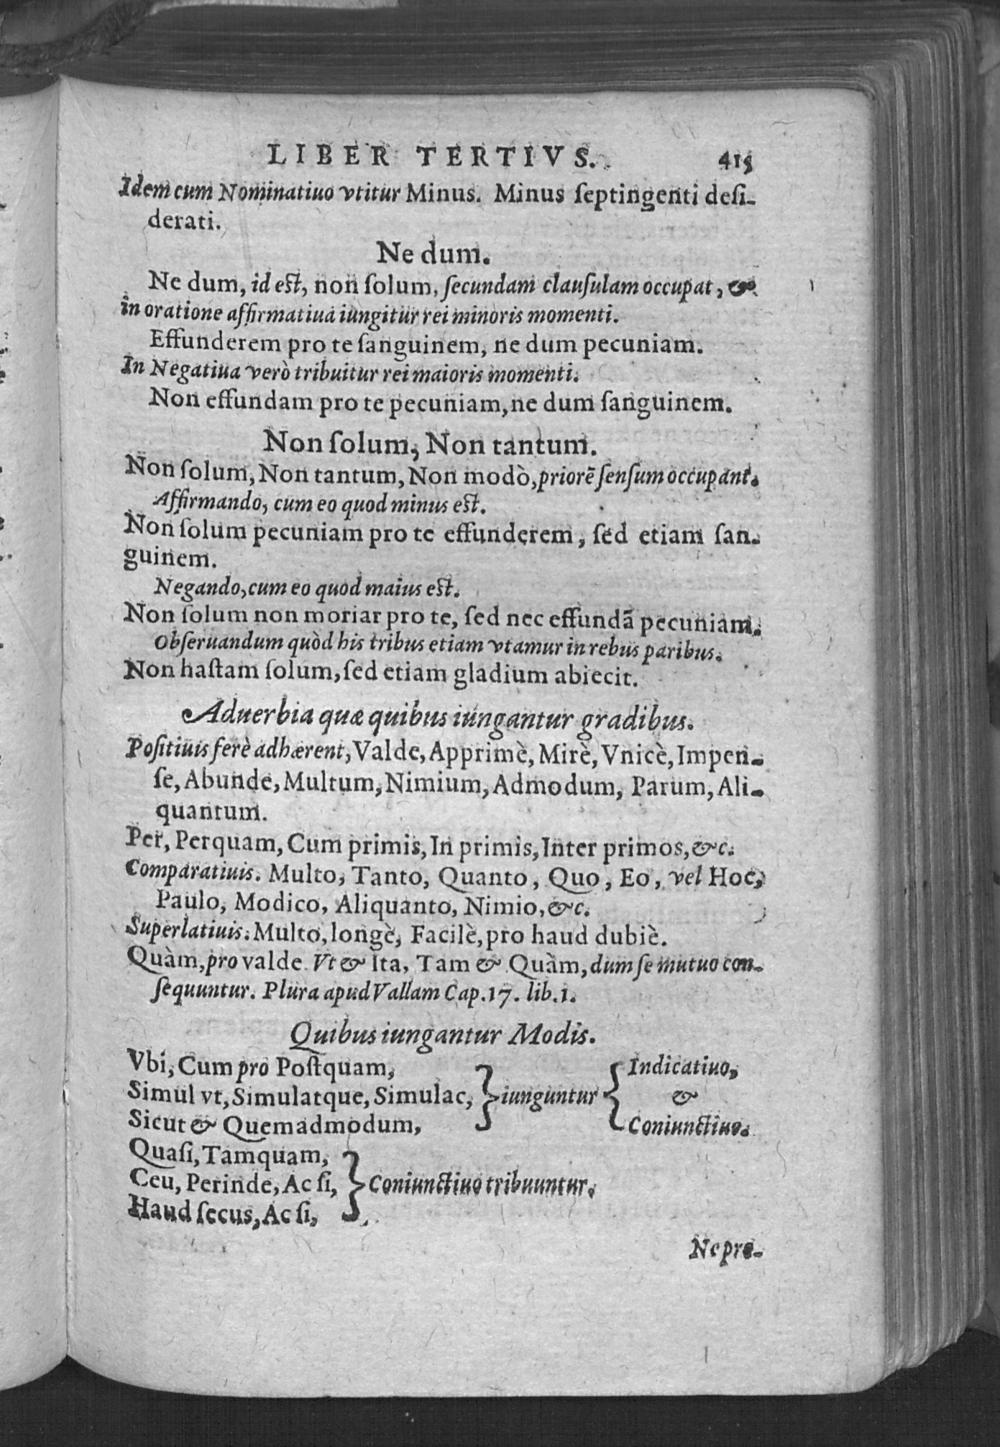 LIBER TERTIVS. 415
Idem cum Nominatiuo vtitur Minus. Minus ſeptingenti deſi-
derati.
Ne dum.
Ne dum, id eſt, non ſolum, ſecundam clauſulam occupat, &
in oratione affirmatiua iungitur rei minoris momenti.
Effunderem pro te ſanguinem, ne dum pecuniam.
In Negatiua verò tribuitur rei maioris momenti.
Non effundam pro te pecuniam, ne dum ſanguinem.
Non ſolum, Non tantum.
Non ſolum, Non tantum, Non modò, priorẽ ſenſum occupant.
Affirmando, cum eo quod minus eſt.
Non ſolum pecuniam pro te effunderem, ſed etiam ſan-
guinem.
Negando, cum eo quod maius eſt.
Non ſolum non moriar pro te, ſed nec effundã pecuniam.
Obſeruandum quòd his tribus etiam vtamur in rebus paribus.
Non haſtam ſolum, ſed etiam gladium abiecit.
Aduerbia quæ quibus iungantur gradibus.
Poſitiuis ferè adhærent, Valde, Apprimè, Mirè, Vnicè, Impen-
ſe, Abunde, Multum, Nimium, Admodum, Parum, Ali-
quantum.
Per, Perquam, Cum primis, In primis, Inter primos, &c.
Comparatiuis. Multo, Tanto, Quanto, Quo, Eo, vel Hoc,
Paulo, Modico, Aliquanto, Nimio, &c.
Superlatiuis. Multo, longè, Facilè, pro haud dubiè.
Quàm, pro valde. Vt & Ita, Tam & Quàm, dum ſe mutuo con-
ſequuntur. Plura apud Vallam Cap. 17. lib. 1.
Quibus iungantur Modis.
Vbi, Cum pro Poſtquam, Indicatiuo,
Simul vt, Simulatque, Simulac, iunguntur &
Sicut & Quemadmodum, Coniunctiuo.
Quaſi, Tamquam,
Ceu, Perinde, Ac ſi, Coniunctiuo tribuuntur.
Haud ſecus, Ac ſi,
Ne pre-